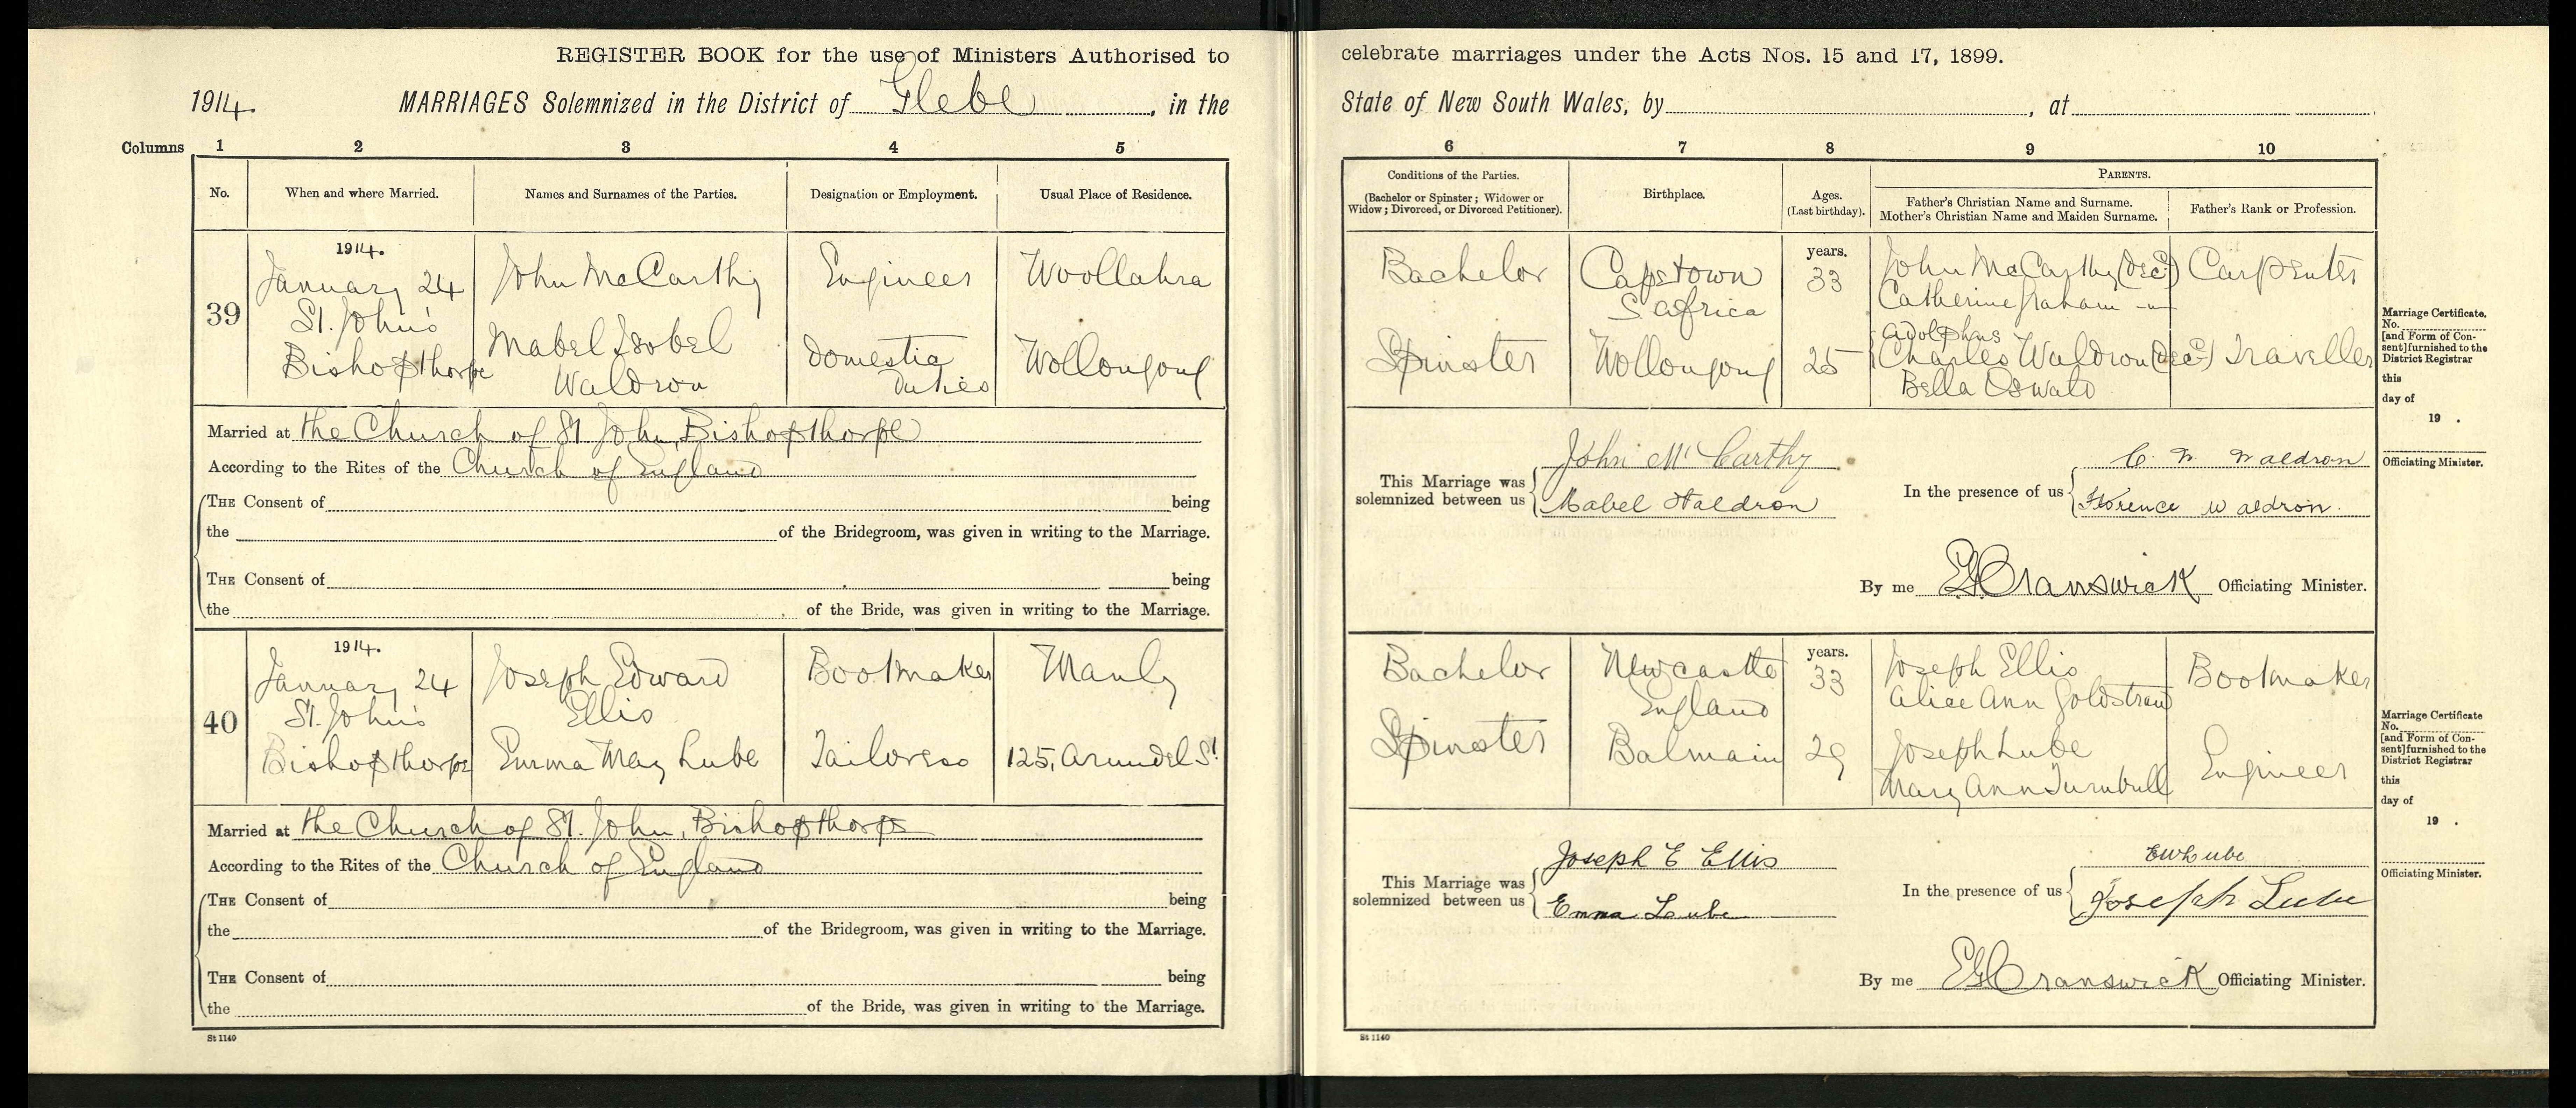 REGISTER BOOK for the use of Ministers Authorised to
1914. MARRIAGES Solemnized in the District of Glebe, in the
Columns 1 2 3 4 5
No. When and where Married. Names and Surnames of the Parties. Designation or Employment. Usual Place of Residence.
39
1914.
January 24
St. John's
Bishopthorpe
John McCarthy
Mabel Isobel
Waldron
Engineer
Domestic
Duties
Woollahra
Wollongong
Married at the Church of St John, Bishopthorpe
According to the Rites of the Church of England
THE Consent of being
the of the Bridegroom, was given in writing to the Marriage.
THE Consent of being
the of the Bride, was given in writing to the Marriage.
40
1914.
January 24
St. John's
Bishopthorpe
Joseph Edward
Ellis
Emma May Lube
Bootmaker
Tailoress
Manly
125, Arundel St
Married at the Church of St. John, Bishopthorpe
According to the Rites of the Church of England
THE Consent of being
the of the Bridegroom, was given in writing to the Marriage.
THE Consent of being
the of the Bride, was given in writing to the Marriage.
St 1140
celebrate marriages under the Acts Nos. 15 and 17, 1899.
State of New South Wales, by , at
6 7 8 9 10
Conditions of the Parties.
(Bachelor or Spinster; Widower or
Widow; Divorced, or Divorced Petitioner).
Birthplace.
Ages.
(Last birthday).
PARENTS.
Father's Christian Name and Surname.
Mother's Christian Name and Maiden Surname.
Father's Rank or Profession.
Bachelor
Spinster
Capetown
S. Africa
Wollongong
years.
33
25
John McCarthy (decd)
Catherine Graham
Adolphus
Charles Waldron (decd)
Bella Oswald
Carpenter
Traveller
This Marriage was
solemnized between us
John McCarthy
Mabel Waldron
In the presence of us
C. W. Waldron
Florence Waldron.
By me EGCranswick Officiating Minister.
Marriage Certificate.
No.
[and Form of Con-
sent] furnished to the
District Registrar
this
day of
19 .
Officiating Minister.
Bachelor
Spinster
Newcastle
England
Balmain
years.
33
29
Joseph Ellis
Alice Ann Goldstraw
Joseph Lube
Mary Ann Turnbull
Bootmaker
Engineer
This Marriage was
solemnized between us
Joseph E Ellis
Emma Lube
In the presence of us
EWLube
Joseph Lube
By me EGCranswick Officiating Minister.
Marriage Certificate
No.
[and Form of Con-
sent] furnished to the
District Registrar
this
day of
19 .
Officiating Minister.
St 1140